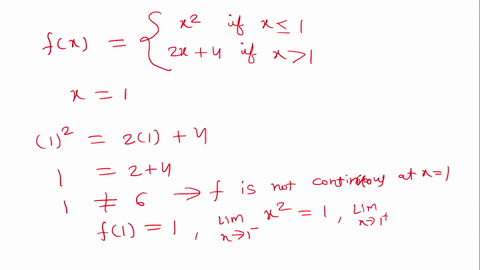 f(x) = { x² if x ≤ 1
2x+4 if x > 1
x = 1
(1)² = 2(1) + 4
1 = 2+4
1 ≠ 6 → f is not continuous at x=1
f(1) = 1 , lim x→1⁻ x² = 1 , lim x→1⁺